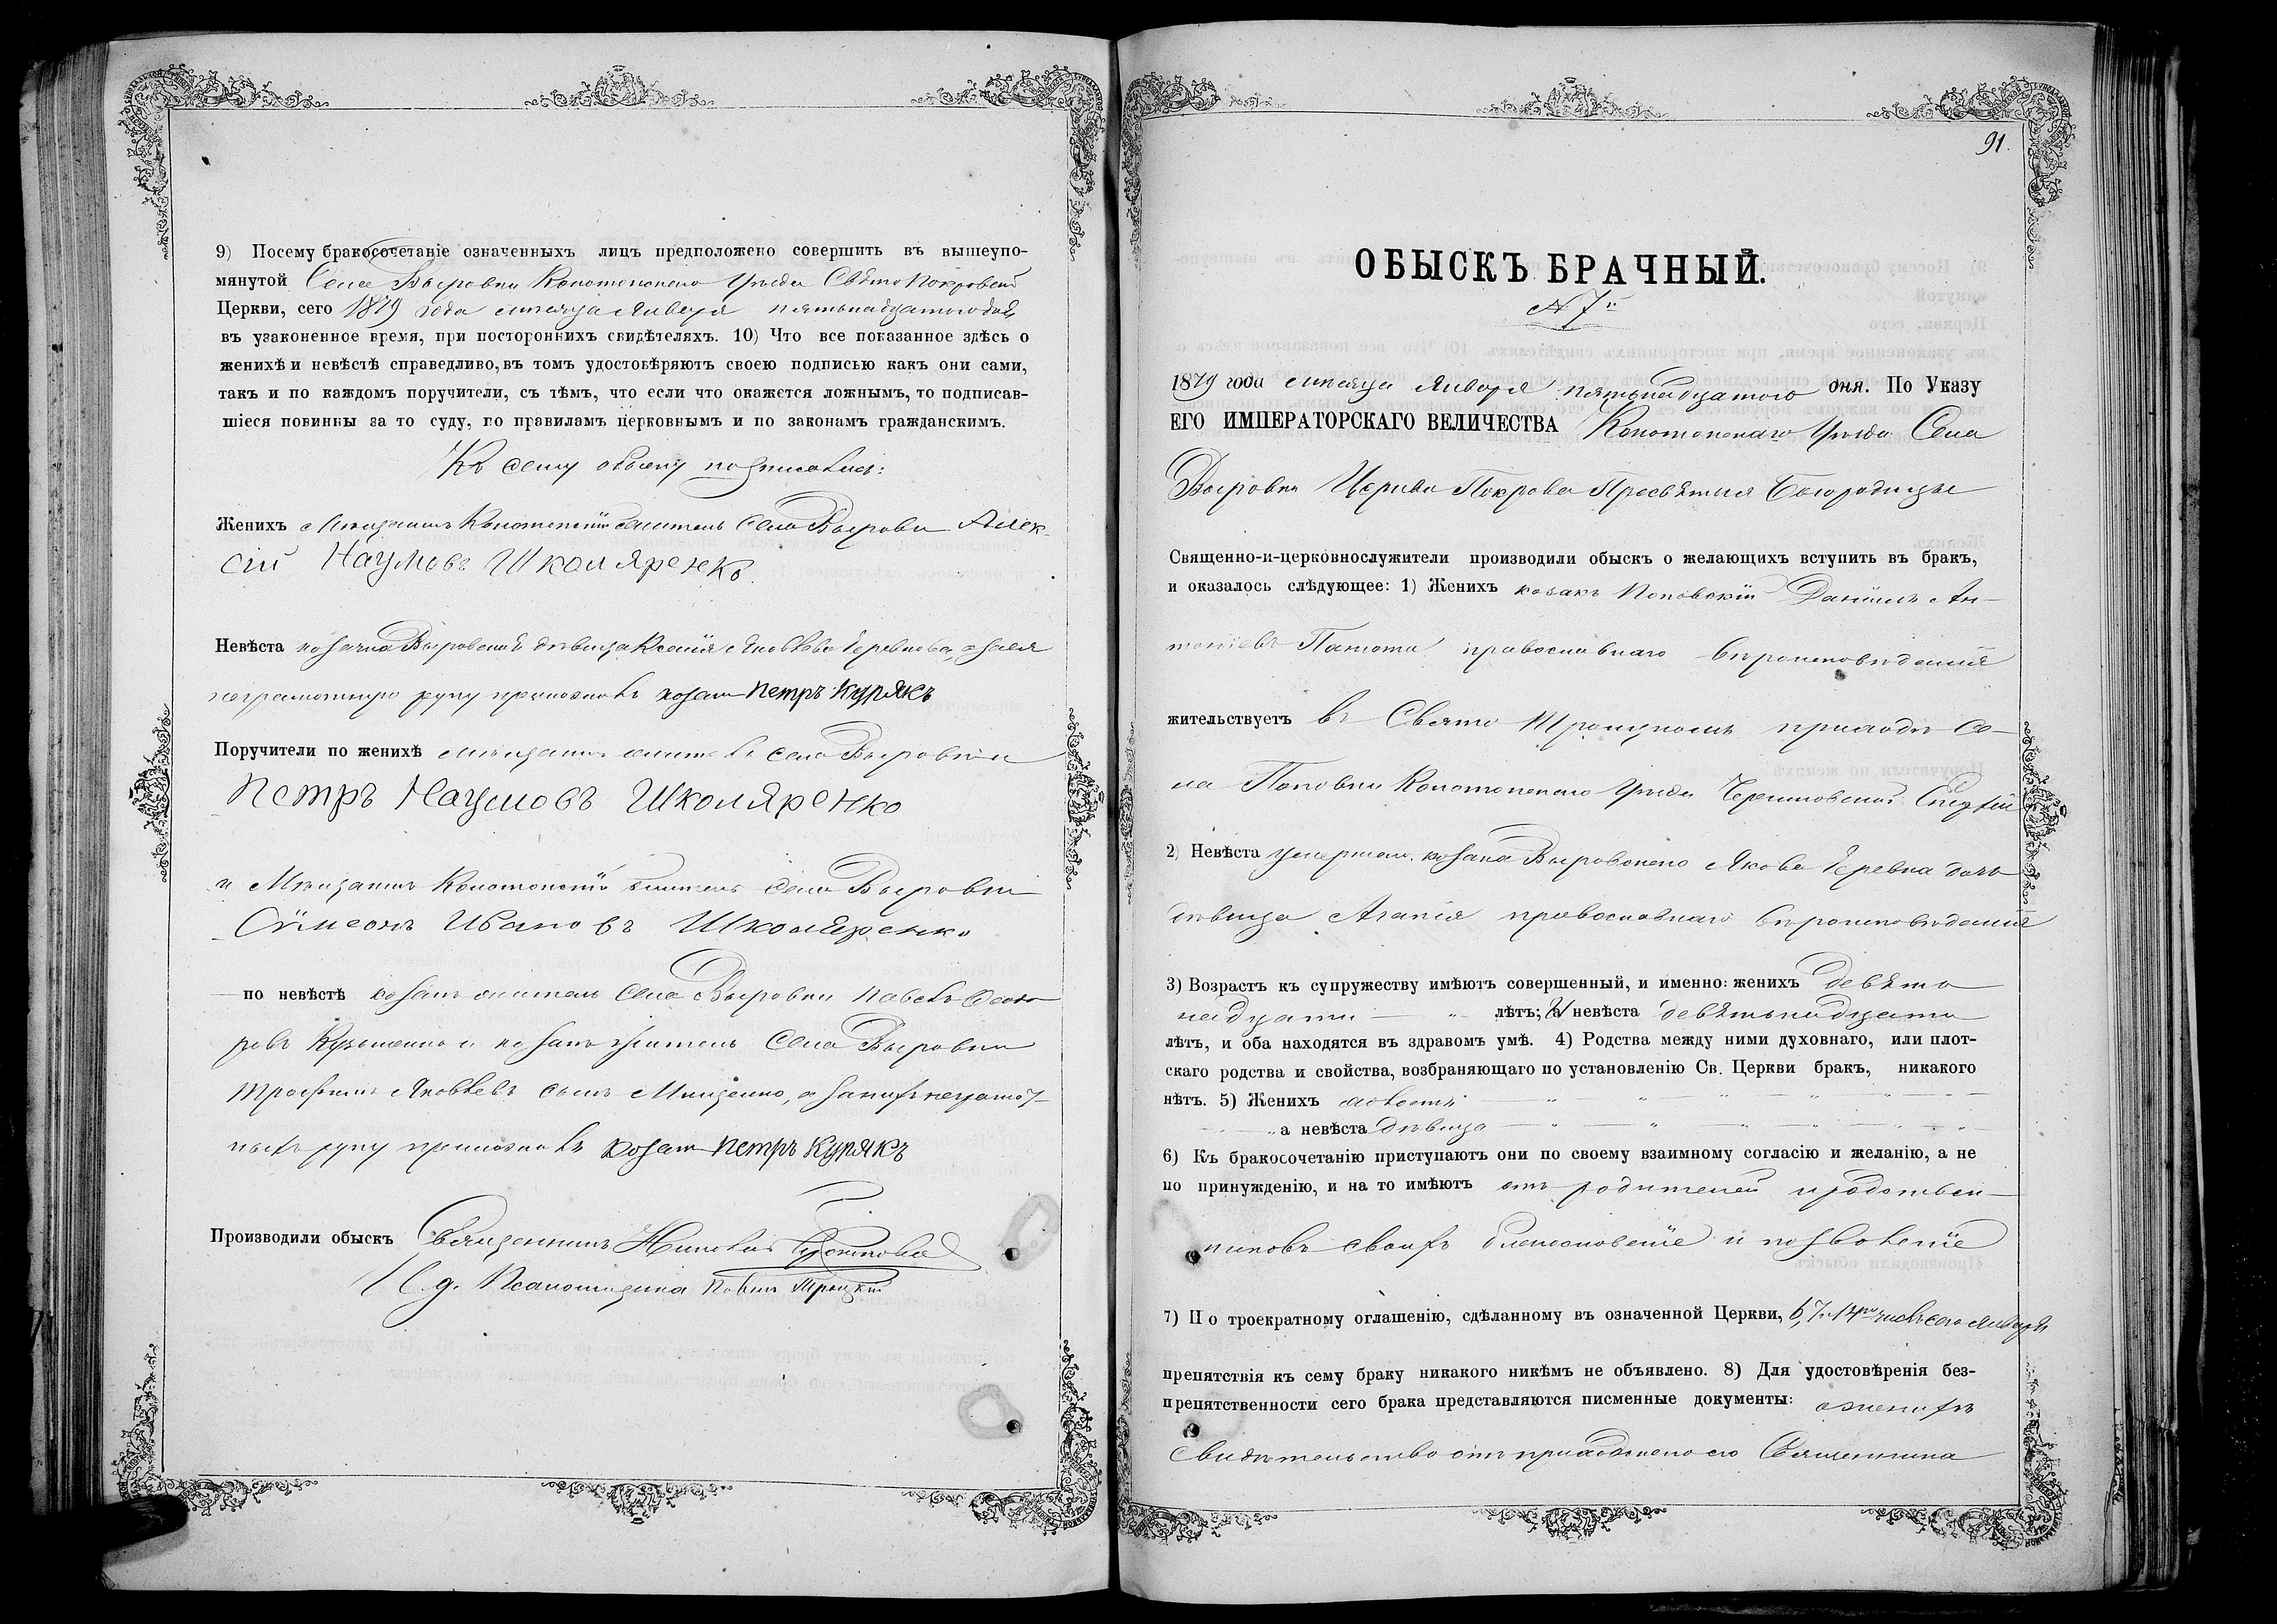 9) Посему бракосочетаніе означенныхъ лицъ предположено совершить въ вышеупо-
мянутой Села Выровки Конотопскаго Уѣзда Свято Покровской
Церкви, сего 1879 года мѣсяца Января пятьнадцатого дня
въ узаконенное время, при постороннихъ свидѣтеляхъ. 10) Что все показанное здѣсь о
женихѣ и невѣстѣ справедливо, въ томъ удостовѣряютъ своею подписью какъ они сами,
такъ и по каждомъ поручители, съ тѣмъ, что если что окажется ложнымъ, то подписав-
шіеся повинны за то суду, по правиламъ церковнымъ и по законамъ гражданскимъ.
Къ сему обыску подписались:
Женихъ Мѣщанинъ Конотопскій житель Села Выровки Алек-
сій Наумовъ Школяренко
Невѣста козачка Выровская дѣвица Ксенія Яковлева а за нея
неграмотную руку приложилъ козакъ Петръ Курякъ
Поручители по женихѣ мѣщанинъ житель села Выровки
Петръ Наумовъ Школяренко
и Мѣщанинъ Конотопскій житель Села Выровки
Сумеонъ Ивановъ Школяренко
по невѣстѣ козакъ житель Села Выровки Павелъ Федо
ровъ Кузменко и козакъ житель Села Выровки
Трофимъ Яковлевъ сынъ Мищенко, а за нихъ неграмот-
ныхъ руку приложилъ козакъ Петръ Курякъ
Производили обыскъ Священникъ
И. д. Псаломщика Павелъ Троцкій
91.
ОБЫСКЪ БРАЧНЫЙ.
№ 7й
1879 года мѣсяца Января пятьнадцатого дня. По Указу
ЕГО ИМПЕРАТОРСКАГО ВЕЛИЧЕСТВА Конотопскаго Уѣзда Села
Выровки Церкви Покрова Пресвятыя Богородицы
Священно-и-церковнослужители производили обыскъ о желающихъ вступить въ бракъ,
и оказалось слѣдующее: 1) Женихъ козакъ Поповскій Даніилъ Ан-
тоніевъ православнаго вѣроисповѣданія
жительствуетъ въ Свято Троицкомъ приходѣ Се-
ла Поповки Конотопскаго Уѣзда Черниговской Епархіи
2) Невѣста умершаго козака Выровскаго Якова Деревка дочь
дѣвица Агапія православнаго вѣроисповѣданія
3) Возрастъ къ супружеству имѣютъ совершенный, и именно: женихъ девято
надцати лѣтъ; а невѣста девятьнадцати
лѣтъ, и оба находятся въ здравомъ умѣ. 4) Родства между ними духовнаго, или плот-
скаго родства и свойства, возбраняющаго по установленію Св. Церкви бракъ, никакого
нѣтъ. 5) Женихъ холостъ
а невѣста дѣвица
6) Къ бракосочетанію приступаютъ они по своему взаимному согласію и желанію, а не
по принужденію, и на то имѣютъ отъ родителей и родствен-
никовъ своихъ благословеніе и позволеніе
7) По троекратному оглашенію, сдѣланному въ означенной Церкви, 6, 7 и 14го числъ сего Января
препятствія къ сему браку никакого никѣмъ не объявлено. 8) Для удостовѣренія без-
препятственности сего брака представляются писменные документы: о женихѣ
свидѣтельство отъ приходскаго его Священника